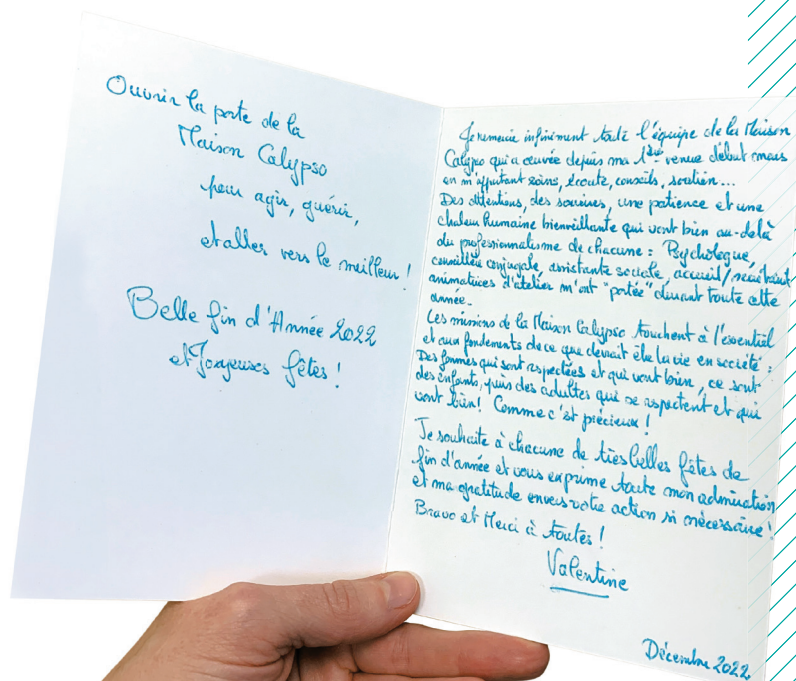 Ouvrir la porte de la
Maison Calypso
pour agir, guérir,
et aller vers le meilleur !
Belle fin d'Année 2022
et Joyeuses fêtes !
Je remercie infiniment toute l'équipe de la Maison
Calypso qui a œuvrée depuis ma 1ère venue début mars
en m'apportant soins, écoute, conseils, soutien...
Des attentions, des sourires, une patience et une
chaleur humaine bienveillante qui vont bien au-delà
du professionnalisme de chacune : Psychologue,
conseillère conjugale, assistante sociale, accueil / secrétariat
animatrices d'atelier m'ont "portée" durant toute cette
année.
Les missions de la Maison Calypso touchent à l'essentiel
et aux fondements de ce que devrait être la vie en société :
Des femmes qui sont respectées et qui vont bien, ce sont
des enfants, puis des adultes qui se respectent et qui
vont bien ! Comme c'est précieux !
Je souhaite à chacune de très belles fêtes de
fin d'année et vous exprime toute mon admiration
et ma gratitude envers votre action si nécessaire !
Bravo et Merci à toutes !
Valentine
Décembre 2022